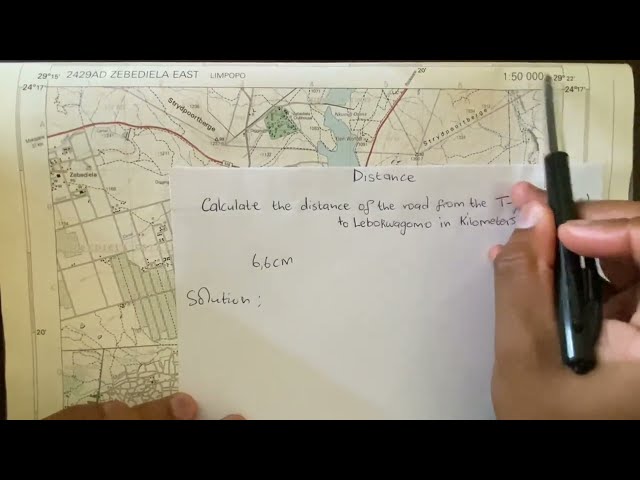 29°15' 2429AD ZEBEDIELA EAST LIMPOPO 20' 1:50 000 29°22'
24°17' 24°17'
Strydpoortberge
Strydpoortberge
Zebediela
Distance
Calculate the distance of the road from the T-
to Lebokwagomo in Kilometers
6,6cm
Solution:
20'